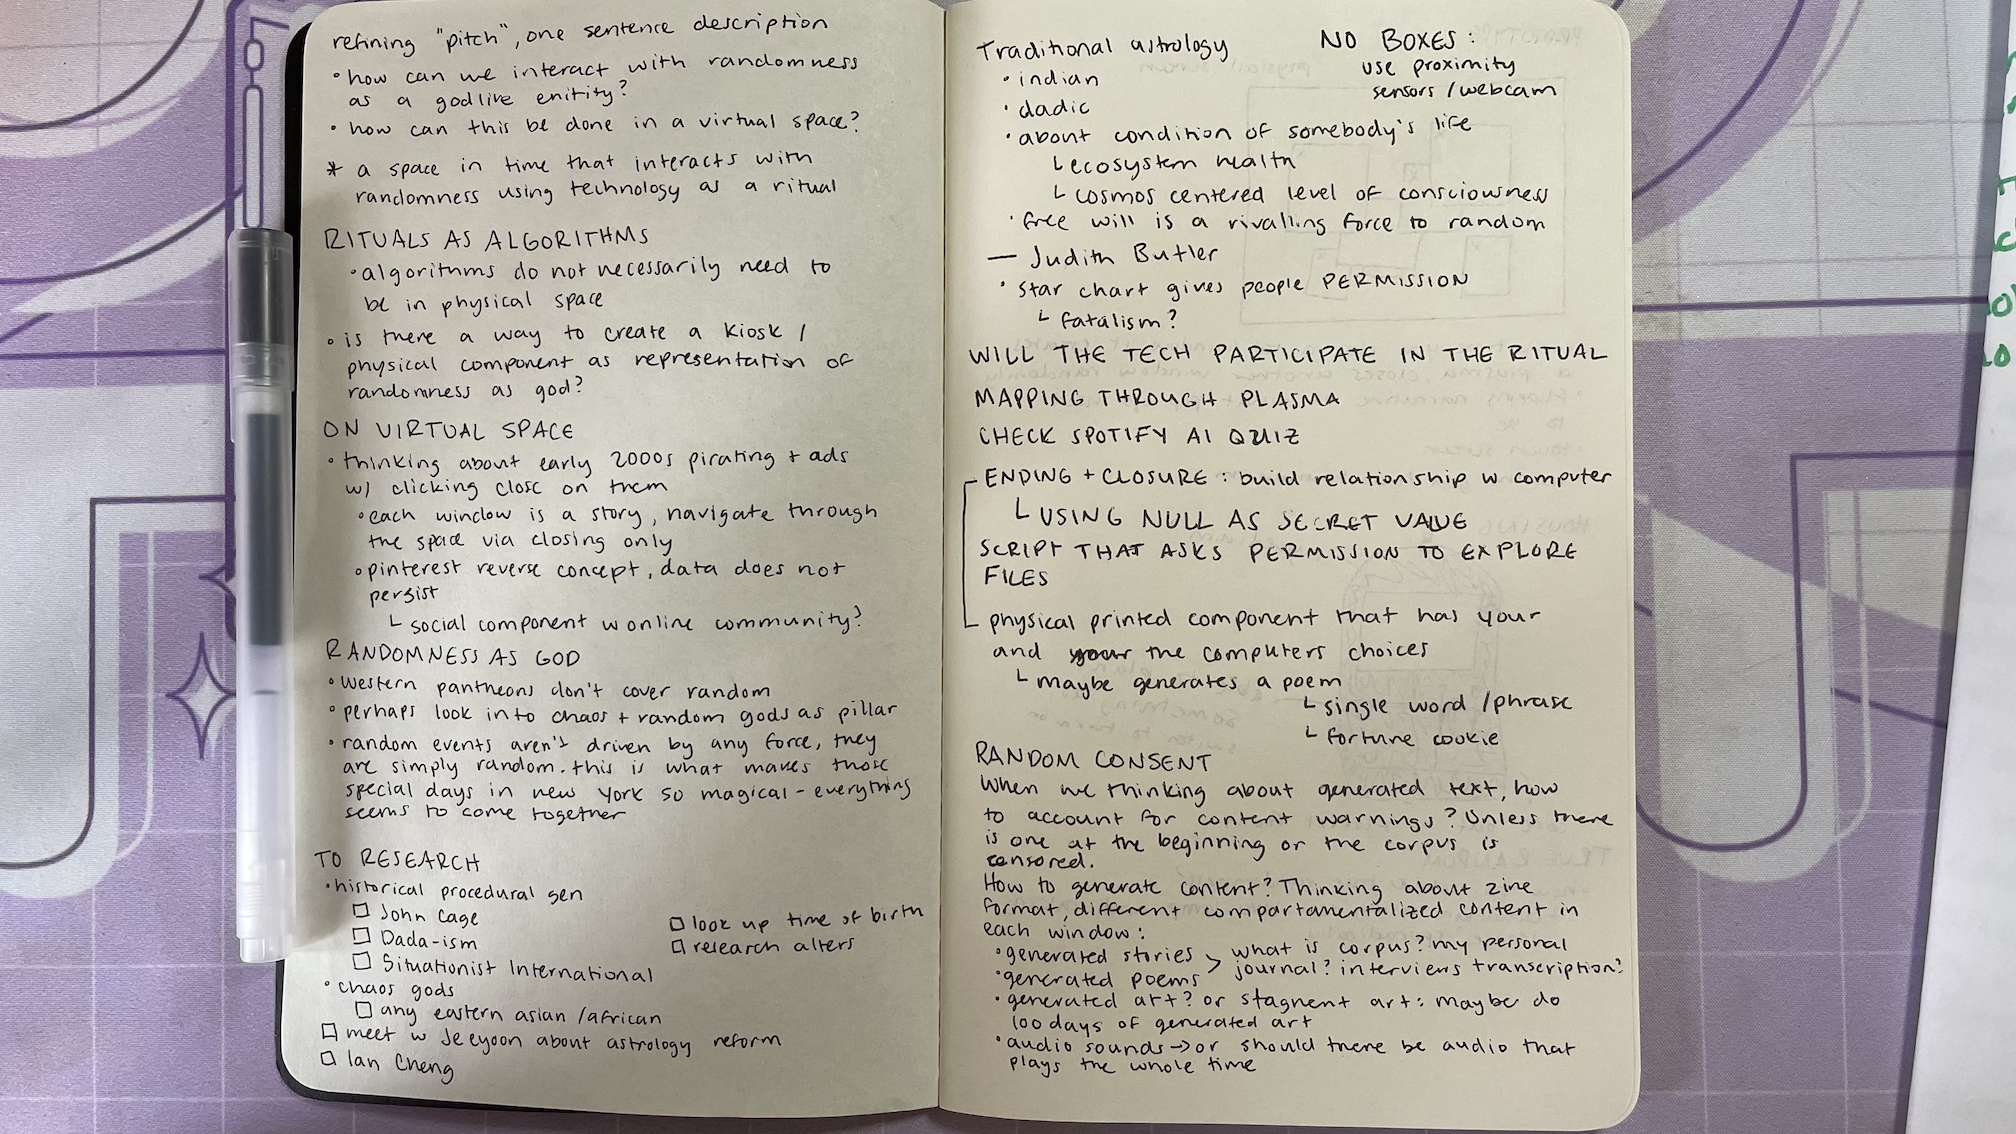 refining "pitch", one sentence description
• how can we interact with randomness
as a godlike enitity?
• how can this be done in a virtual space?
* a space in time that interacts with
randomness using technology as a ritual
RITUALS AS ALGORITHMS
• algorithms do not necessarily need to
be in physical space
• is there a way to create a kiosk /
physical component as representation of
randomness as god?
ON VIRTUAL SPACE
• thinking about early 2000s pirating + ads
w/ clicking close on them
• each window is a story, navigate through
the space via closing only
• pinterest reverse concept, data does not
persist
└ social component w online community?
RANDOMNESS AS GOD
• western pantheons don't cover random
• perhaps look into chaos + random gods as pillar
• random events aren't driven by any force, they
are simply random. this is what makes those
special days in new york so magical - everything
seems to come together
TO RESEARCH
• historical procedural gen
☐ John Cage
☐ Dada-ism
☐ Situationist International
• chaos gods
☐ any eastern asian /african
☐ meet w Jeeyoon about astrology reform
☐ Ian Cheng
☐ look up time of birth
☐ research alters
Traditional astrology
• indian
• dadic
• about condition of somebody's life
└ ecosystem health
└ cosmos centered level of consciousness
• free will is a rivalling force to random
— Judith Butler
• star chart gives people PERMISSION
└ fatalism?
NO BOXES:
use proximity
sensors /webcam
WILL THE TECH PARTICIPATE IN THE RITUAL
MAPPING THROUGH PLASMA
CHECK SPOTIFY AI QUIZ
ENDING + CLOSURE: build relationship w computer
└ USING NULL AS SECRET VALUE
SCRIPT THAT ASKS PERMISSION TO EXPLORE
FILES
physical printed component that has your
and your the computers choices
└ maybe generates a poem
└ single word /phrase
└ fortune cookie
RANDOM CONSENT
When we thinking about generated text, how
to account for content warnings? Unless there
is one at the beginning or the corpus is
censored.
How to generate content? Thinking about zine
format, different compartamentalized content in
each window:
• generated stories > what is corpus? my personal
• generated poems journal? interviews transcription?
• generated art? or stagnent art: maybe do
100 days of generated art
• audio sounds → or should there be audio that
plays the whole time